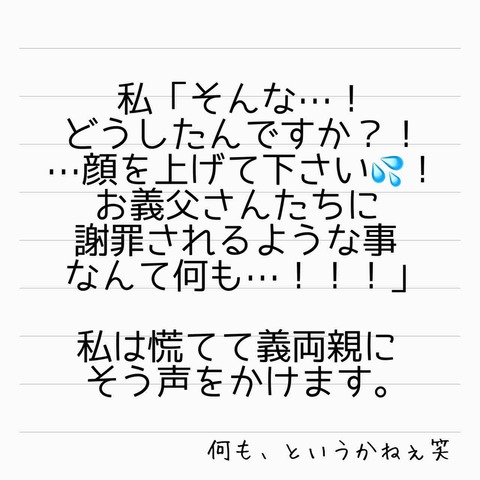 私「そんな…！
どうしたんですか？！
…顔を上げて下さい💦！
お義父さんたちに
謝罪されるような事
なんて何も…！！！」
私は慌てて義両親に
そう声をかけます。
何も、というかねぇ笑